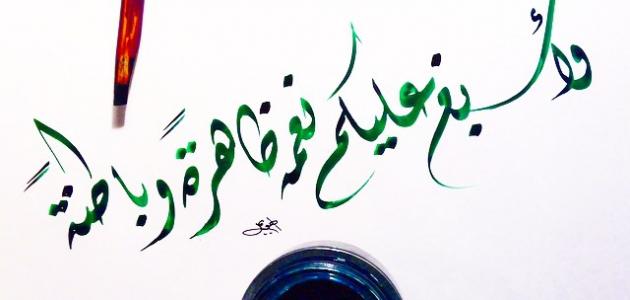 وأسبغ عليكم نعمه ظاهرةً وباطنةً